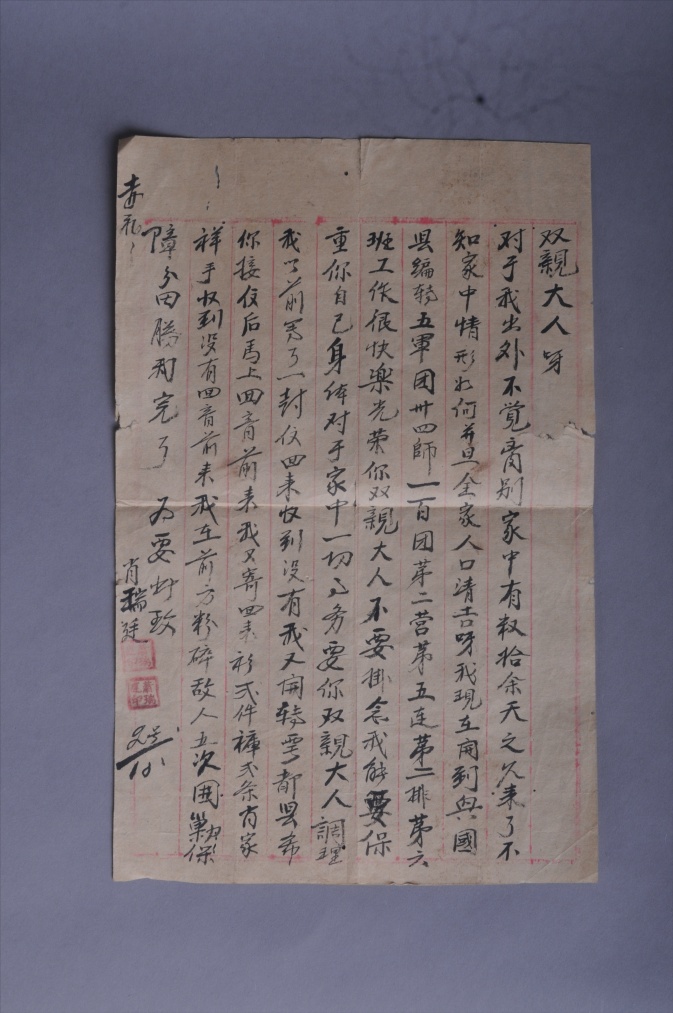 双親大人呀
对于我出外不觉离别家中有数拾余天之久来了不
知家中情形如何并且全家人口清吉呀我现在开到兴國
县编转五軍团卅四師一百团第二营第五连第二排第六
班工作很快樂光荣你双親大人不要掛念我能要保
重你自己身体对于家中一切事务要你双親大人調理
我了前寄了一封仪回来收到没有我又開转雩都县希
你接仪后馬上回音前来我又寄回来衫弍件裤弍条肖家
祥手收到没有回音前来我在前方粉碎敌人五次囲巢保
障分田勝利完了 为要
肖瑞廷
赤礼